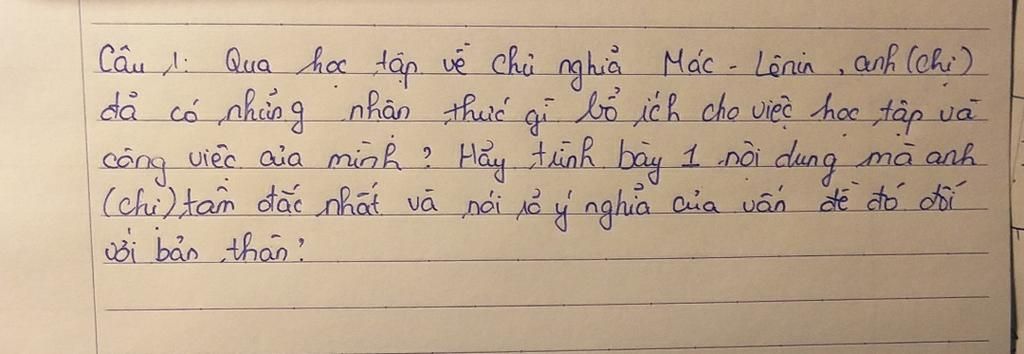 Câu 1: Qua học tập về chủ nghỉa Mác - Lênin, anh (chị)
đả có nhửng nhận thức gì bổ ích cho việc học tập và
công việc của mình? Hảy trình bày 1 nội dung mà anh
(chị) tâm đắc nhất và nói rỏ ý nghỉa của vấn đề đó đối
với bản thân?